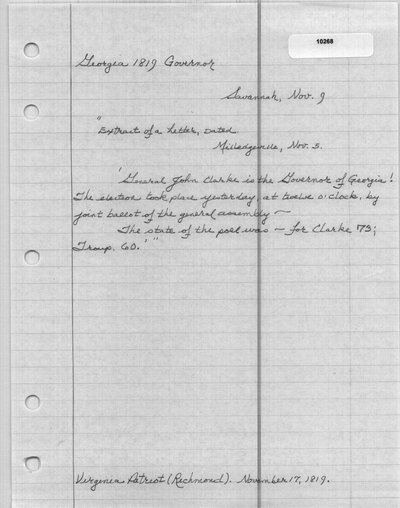 10268
Georgia 1819 Governor
Savannah, Nov. 9
"Extract of a letter, dated
Milledgeville, Nov. 5.
'General John Clarke is the Governor of Georgia!
The election took place yesterday, at twelve o'clock, by
joint ballot of the general assembly —
The state of the poll was — for Clarke 73;
Troup, 60.'"
Virginia Patriot (Richmond). November 17, 1819.